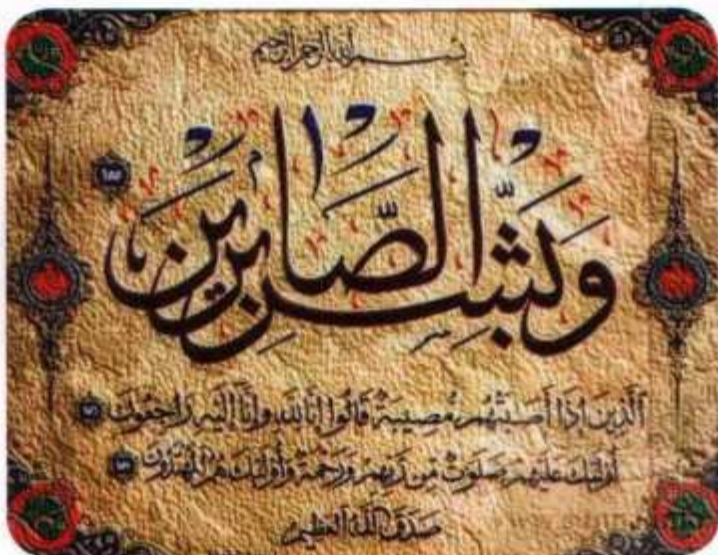 بسم الله الرحمن الرحيم
وَبَشِّرِ الصَّابِرِينَ ١٥٥
الَّذِينَ إِذَا أَصَابَتْهُم مُّصِيبَةٌ قَالُوا إِنَّا لِلَّهِ وَإِنَّا إِلَيْهِ رَاجِعُونَ ١٥٦
أُولَٰئِكَ عَلَيْهِمْ صَلَوَاتٌ مِّن رَّبِّهِمْ وَرَحْمَةٌ وَأُولَٰئِكَ هُمُ الْمُهْتَدُونَ ١٥٧
صدق الله العظيم